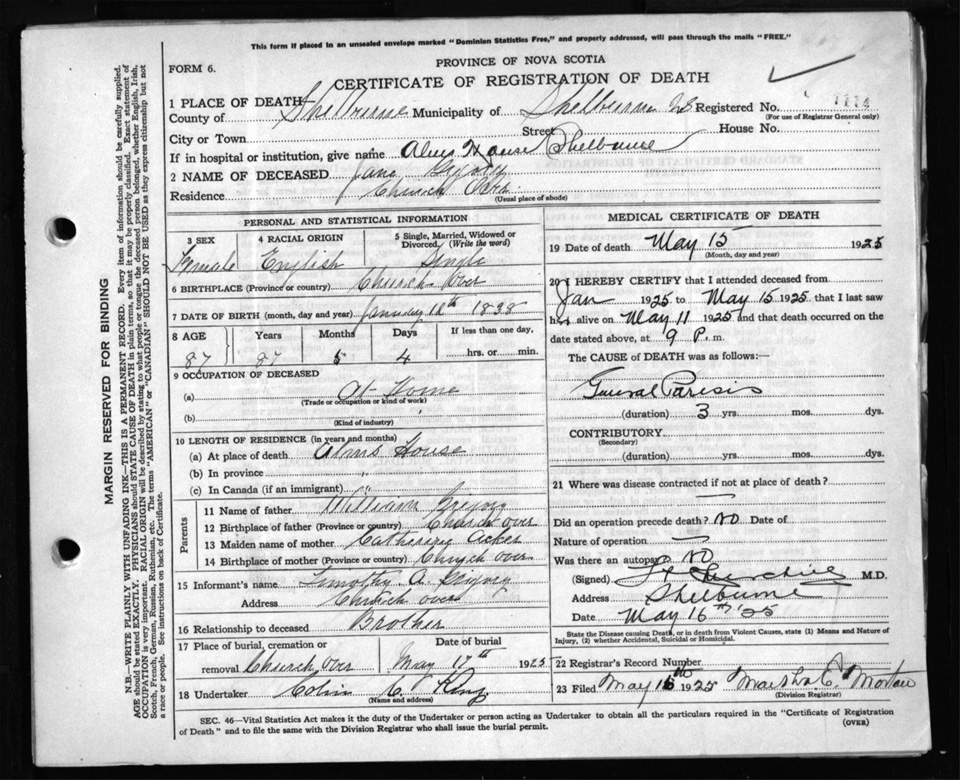 This form if placed in an unsealed envelope marked "Dominion Statistics Free," and properly addressed, will pass through the mails "FREE."
PROVINCE OF NOVA SCOTIA
FORM 6.
CERTIFICATE OF REGISTRATION OF DEATH
1 PLACE OF DEATH
County of Shelburne Municipality of Shelburne Registered No.
(For use of Registrar General only)
City or Town Street House No.
If in hospital or institution, give name Alms House Shelburne
2 NAME OF DECEASED Jane
Residence Church Over
(Usual place of abode)
PERSONAL AND STATISTICAL INFORMATION
3 SEX 4 RACIAL ORIGIN 5 Single, Married, Widowed or Divorced (Write the word)
Female English Single
6 BIRTHPLACE (Province or country) Church Over
7 DATE OF BIRTH (month, day and year) January 1838
8 AGE Years Months Days If less than one day,
87 87 5 4 hrs. or min.
9 OCCUPATION OF DECEASED
(a) At Home
(Trade or occupation or kind of work)
(b)
(Kind of industry)
10 LENGTH OF RESIDENCE (in years and months)
(a) At place of death Alms House
(b) In province "
(c) In Canada (if an immigrant) "
Parents
11 Name of father William
12 Birthplace of father (Province or country) Church over
13 Maiden name of mother Catherine Acker
14 Birthplace of mother (Province or country) Church over
15 Informant's name Timothy A.
Address Church over
16 Relationship to deceased Brother
17 Place of burial, cremation or Date of burial
removal Church over May 17th 1925
18 Undertaker Colin C. King
(Name and address)
MEDICAL CERTIFICATE OF DEATH
19 Date of death May 15 1925
(Month, day and year)
20 I HEREBY CERTIFY that I attended deceased from
Jan 1925 to May 15 1925 that I last saw
her alive on May 11 1925 and that death occurred on the
date stated above, at 9 P. m.
The CAUSE OF DEATH was as follows:
General Paresis
(duration) 3 yrs. mos. dys.
CONTRIBUTORY
(Secondary)
(duration) yrs. mos. dys.
21 Where was disease contracted if not at place of death?
—
Did an operation precede death? No Date of
Nature of operation —
Was there an autopsy No
(Signed) M.D.
Address Shelburne
Date May 16th '25
State the Disease causing Death, or in death from Violent Causes, state (1) Means and Nature of
Injury, (2) whether Accidental, Suicidal or Homicidal.
22 Registrar's Record Number
23 Filed May 1925
(Division Registrar)
SEC. 46—Vital Statistics Act makes it the duty of the Undertaker or person acting as Undertaker to obtain all the particulars required in the "Certificate of Registration
of Death" and to file the same with the Division Registrar who shall issue the burial permit.
(OVER)
MARGIN RESERVED FOR BINDING
N.B.—WRITE PLAINLY WITH UNFADING INK—THIS IS A PERMANENT RECORD. Every item of information should be carefully supplied.
AGE should be stated EXACTLY. PHYSICIANS should STATE CAUSE OF DEATH in plain terms, so that it may be properly classified. Exact statement of
OCCUPATION is very important. RACIAL ORIGIN will be described by stating to what people or tongue the deceased person belonged, whether English, Irish,
Scotch, French, German, Russian, Ruthenian, etc. The terms "AMERICAN" or "CANADIAN" SHOULD NOT BE USED as they express citizenship but not
a race or people. See instructions on back of Certificate.